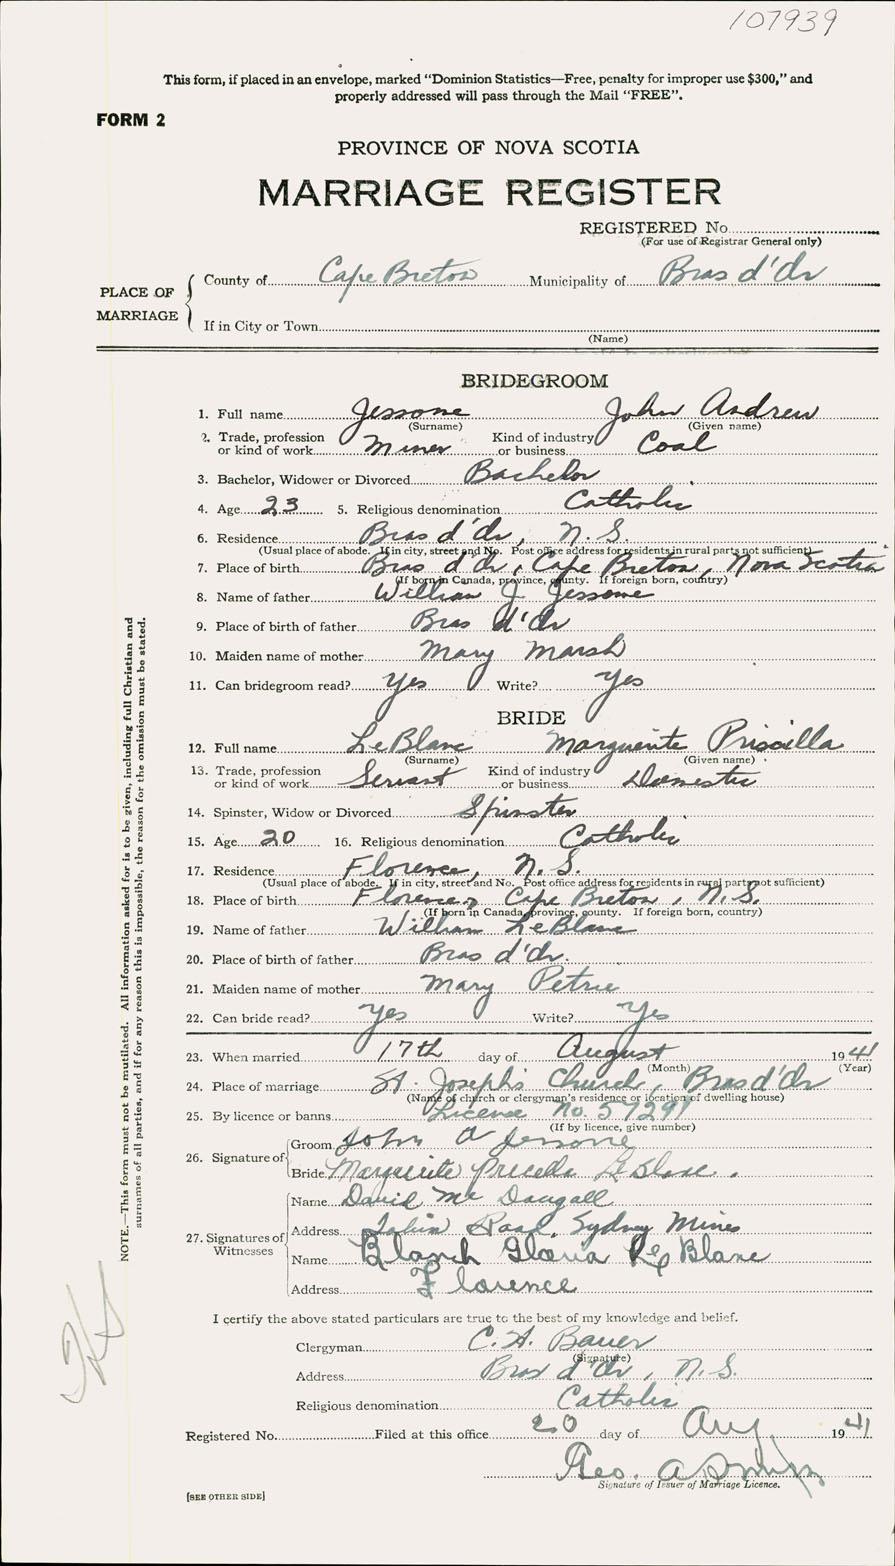 107939
This form, if placed in an envelope, marked "Dominion Statistics—Free, penalty for improper use $300," and
properly addressed will pass through the Mail "FREE".
FORM 2
PROVINCE OF NOVA SCOTIA
MARRIAGE REGISTER
REGISTERED No.
(For use of Registrar General only)
PLACE OF MARRIAGE
County of Cape Breton Municipality of Bras d'Or
If in City or Town
(Name)
BRIDEGROOM
1. Full name Jessome John Andrew
(Surname) (Given name)
2. Trade, profession or kind of work Miner Kind of industry or business Coal
3. Bachelor, Widower or Divorced Bachelor
4. Age 23 5. Religious denomination Catholic
6. Residence Bras d'Or, N.S.
(Usual place of abode. If in city, street and No. Post office address for residents in rural parts not sufficient)
7. Place of birth Bras d'Or, Cape Breton, Nova Scotia
(If born in Canada, province, county. If foreign born, country)
8. Name of father William J Jessome
9. Place of birth of father Bras d'Or
10. Maiden name of mother Mary Marsh
11. Can bridegroom read? Yes Write? Yes
BRIDE
12. Full name LeBlanc Marguerite Priscilla
(Surname) (Given name)
13. Trade, profession or kind of work Servant Kind of industry or business Domestic
14. Spinster, Widow or Divorced Spinster
15. Age 20 16. Religious denomination Catholic
17. Residence Florence, N.S.
(Usual place of abode. If in city, street and No. Post office address for residents in rural parts not sufficient)
18. Place of birth Florence, Cape Breton, N.S.
(If born in Canada, province, county. If foreign born, country)
19. Name of father William LeBlanc
20. Place of birth of father Bras d'Or.
21. Maiden name of mother Mary Petrie
22. Can bride read? Yes Write? Yes
23. When married 17th day of August 1941
(Month) (Year)
24. Place of marriage St. Joseph's Church, Bras d'Or
(Name of church or clergyman's residence or location of dwelling house)
25. By licence or banns Licence No. 57291
(If by licence, give number)
26. Signature of
Groom John A Jessome
Bride Marguerite Precella LeBlanc.
27. Signatures of Witnesses
Name David McDougall
Address Road, Sydney Mines
Name Blanch Gloria LeBlanc
Address Florence
I certify the above stated particulars are true to the best of my knowledge and belief.
Clergyman C. H. Bauer
(Signature)
Address Bras d'Or, N.S.
Religious denomination Catholic
Registered No. Filed at this office 20 day of Aug 1941
Geo. A
Signature of Issuer of Marriage Licence.
[SEE OTHER SIDE]
NOTE.—This form must not be mutilated. All information asked for is to be given, including full Christian and
surnames of all parties, and if for any reason this is impossible, the reason for the omission must be stated.